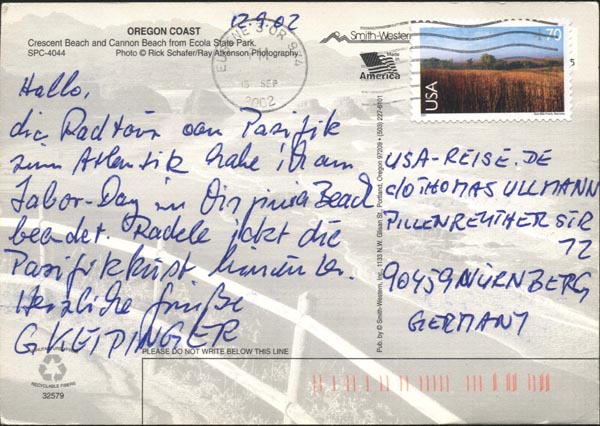 OREGON COAST
Crescent Beach and Cannon Beach from Ecola State Park.
SPC-4044 Photo © Rick Schafer/Ray Atkinson Photography
12.9.02
Smith-Western
Made in
America
EUGENE OR 974
15 SEP
2002
70
USA
Hallo,
die Radtour vom Pazifik
zum Atlantik habe ich am
Labor-Day in Virginia Beach
beendet. Radele jetzt die
Pazifikküste hinunter.
Herzliche Grüße
G KEIPINGER
Pub. by © Smith-Western, Inc., 1133 N.W. Glisan St., Portland, Oregon 97209 • (503) 227-6101
USA-REISE.DE
C/O THOMAS ULLMANN
PILLENREUTHER STR
72
90459 NÜRNBERG
GERMANY
PLEASE DO NOT WRITE BELOW THIS LINE
RECYCLABLE FIBERS
32579